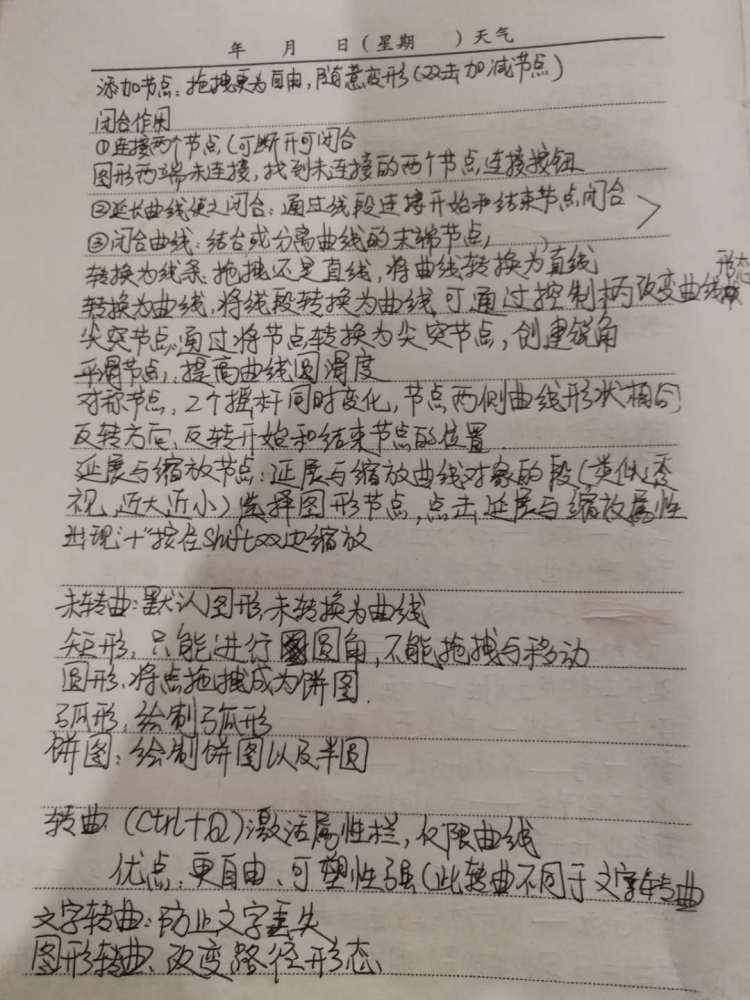 年 月 日（星期 ）天气
添加节点：拖拽更为自由，随意变形（双击加减节点）
闭合作用
①连接两个节点（可断开可闭合
图形两端未连接，找到未连接的两个节点，连接按钮
②延长曲线使之闭合：通过线段连接开始和结束节点闭合
③闭合曲线：结合或分离曲线的末端节点，
转换为线条：拖拽还是直线，将曲线转换为直线
转换为曲线，将线段转换为曲线，可通过控制柄改变曲线形态
尖突节点：通过将节点转换为尖突节点，创建锐角
平滑节点：提高曲线圆滑度
对称节点，2个摇杆同时变化，节点两侧曲线形状相同
反转方向、反转开始和结束节点的位置
延展与缩放节点：延展与缩放曲线对象的段（类似透
视，近大近小）选择图形节点，点击延展与缩放属性
出现"计"按住Shift双边缩放
未转曲：默认图形，未转换为曲线
矩形，只能进行圆角，不能拖拽与移动
圆形，将点拖拽成为饼图．
弧形，绘制弧形
饼图：绘制饼图以及半圆
转曲（Ctrl+Q）激活属性栏，仅限曲线
优点：更自由、可塑性强（此转曲不同于文字转曲
文字转曲：防止文字丢失
图形转曲、改变路径形态、